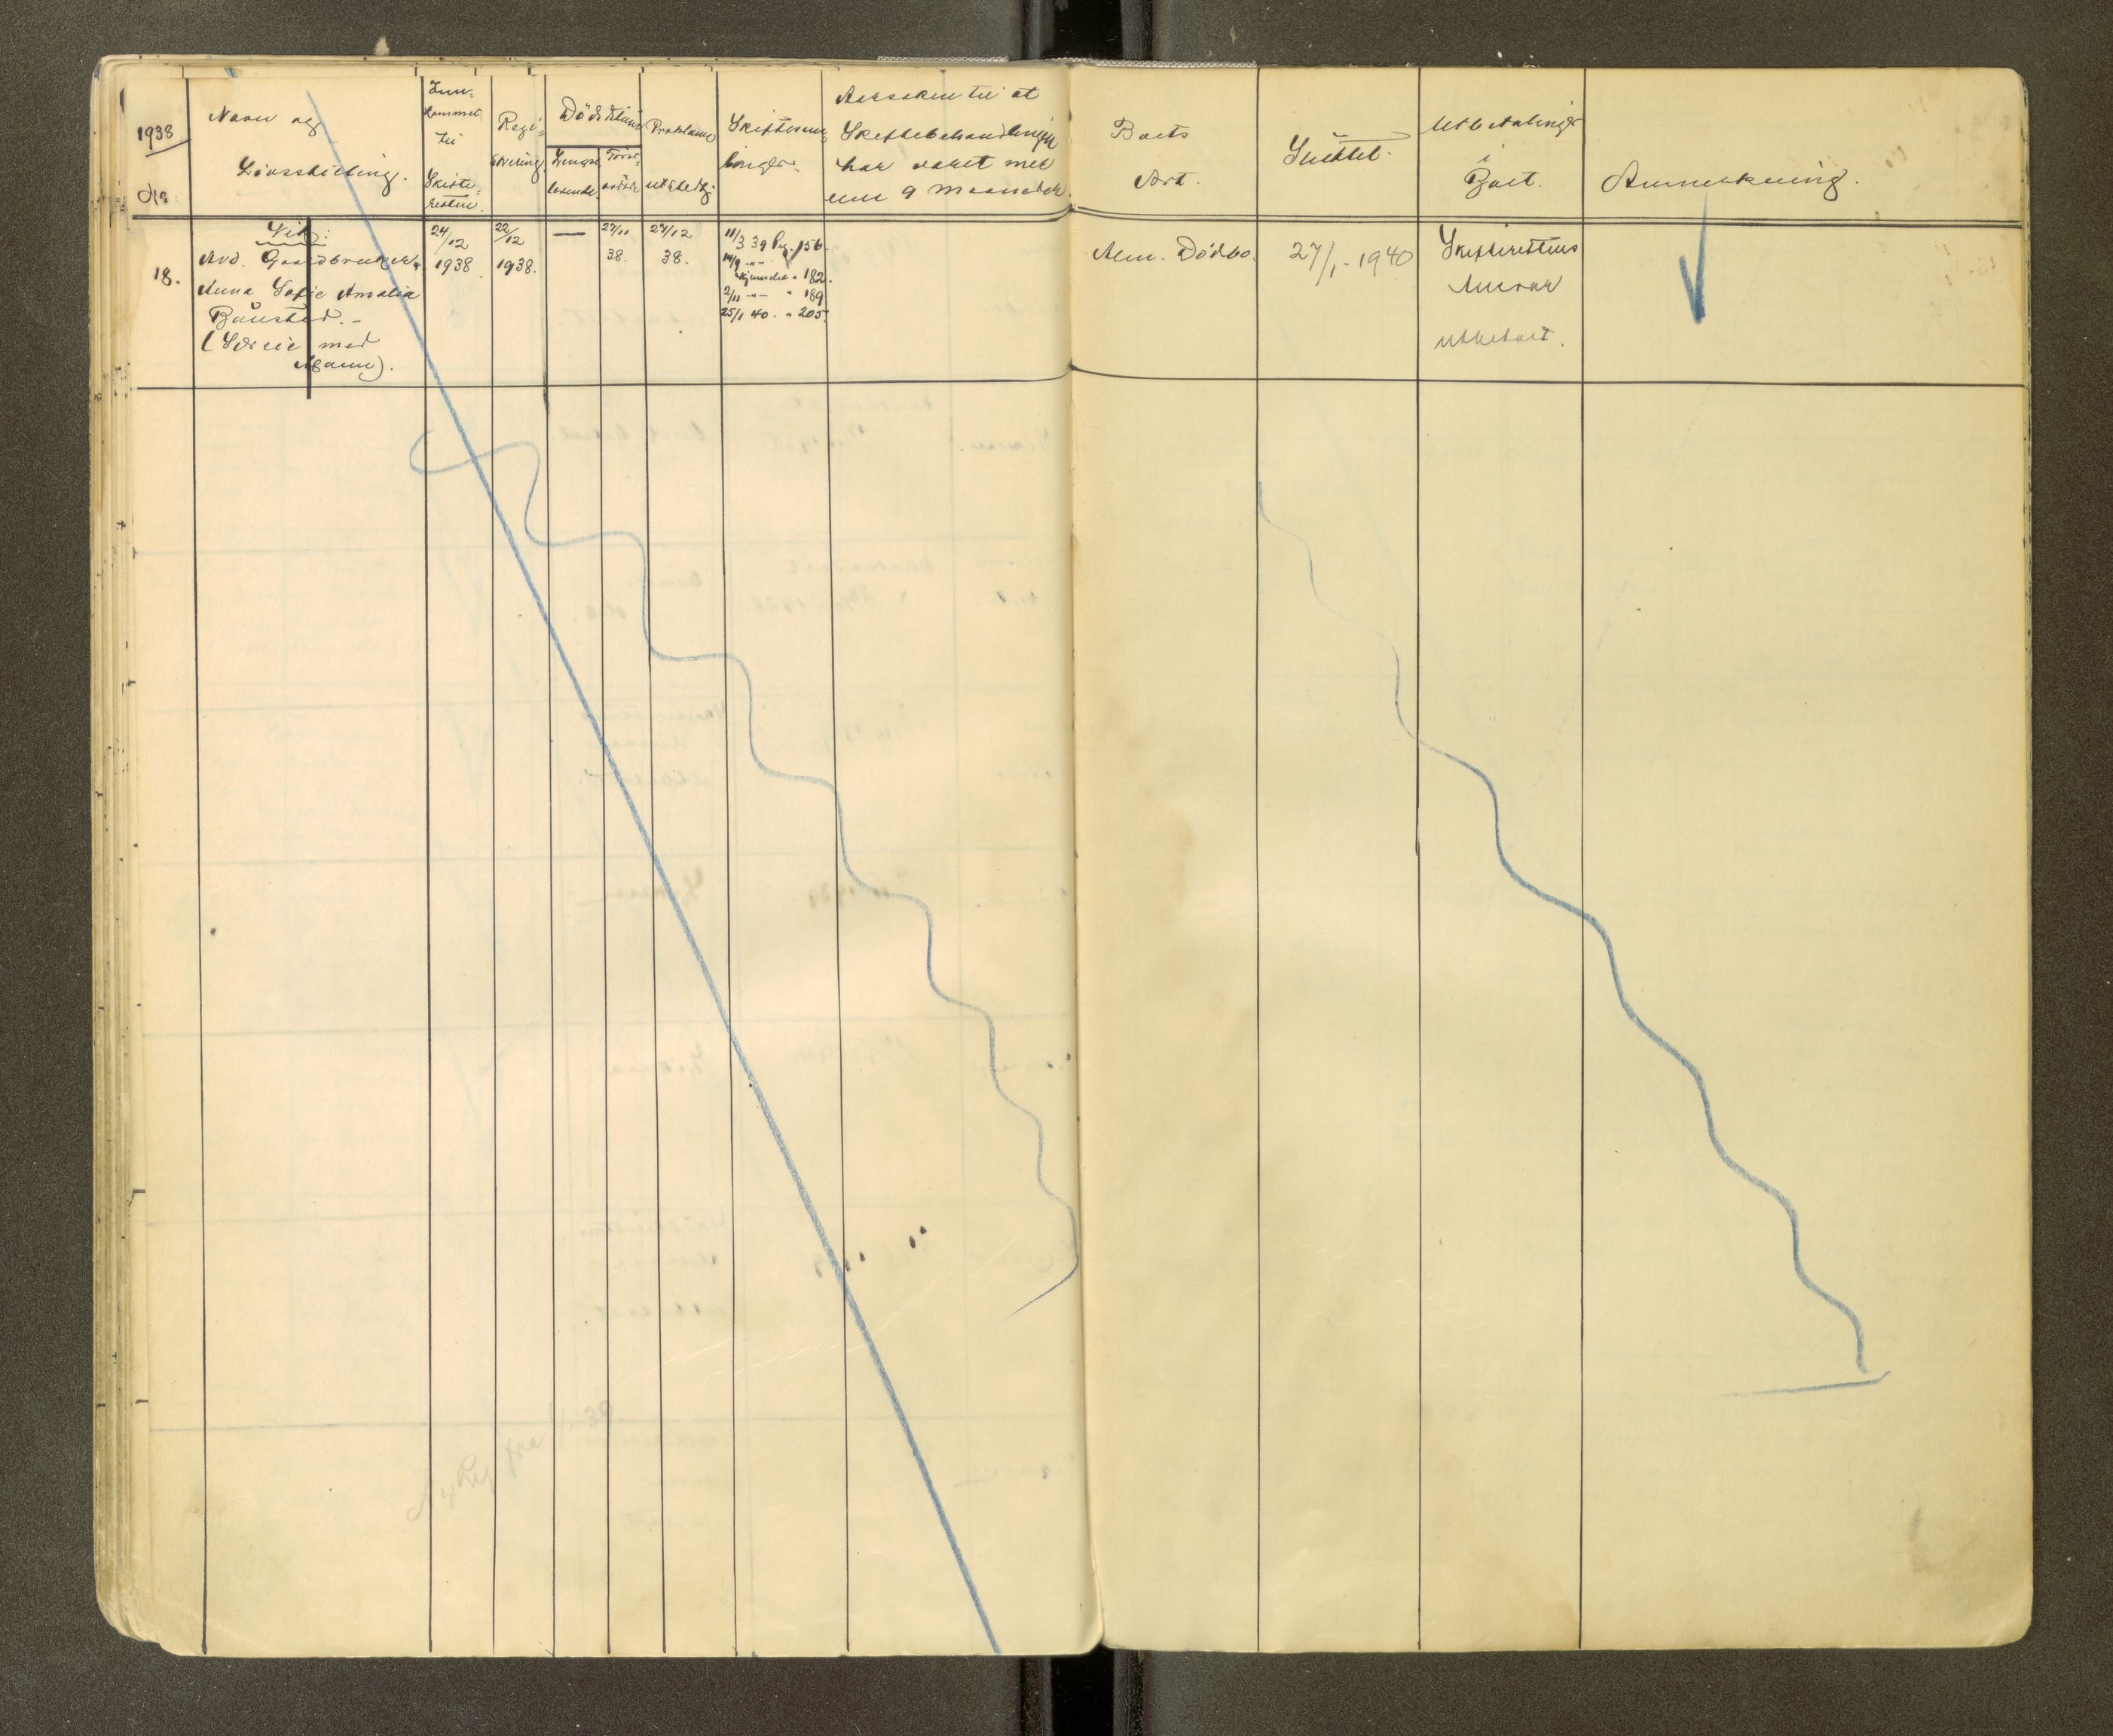 1938
No
Navn og
Livsstilling.
Inn-
kommet
til
Skifte-
retten.
Regi-
strering
Dödstilliende
Proklama
utstedt
Skiftesam-
linger.
Aarsaken til at
Skiftebehandlingen
har varet mer
enn 9 maaneder.
Boets
Art.
Sluttet.
Utbetalinger
i
Boet.
Anmerkning.
18.
Vik:
Avd. Gaardbruker
Anna Sofie Amalia
Bönsted.-
(Særeie med
Mann).
24/12
1938
22/12
1938.
—
27/11
38.
27/12
38.
11/3 39 Pag. 156.
14/9 -"-
Kjennelse " 182.
2/11 -"- " 189
25/1 40. " 205.
Alm. Dödbo.
27/1-1940
Skifterettens
Ansvar
utbetalt.
Ny Reg fra 1/1 39